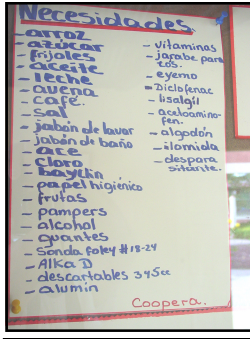 Necesidades.
- arroz
- azúcar
- frijoles
- aceite
- leche
- avena
- café.
- sal
- jabón de lavar
- jabón de baño
- ace
- cloro
- papel higiénico
- frutas
- pampers
- alcohol
- guantes
- Sonda foley #18-24
- Alka D
- descartables 3 y 5cc
- alumin
- vitaminas
- jarabe para
tos.
- eyemo
- Diclofenac
- lisalgil
- acetoamino-
fen.
- algodón
- ilomida
- despara
sitante.
Coopera.